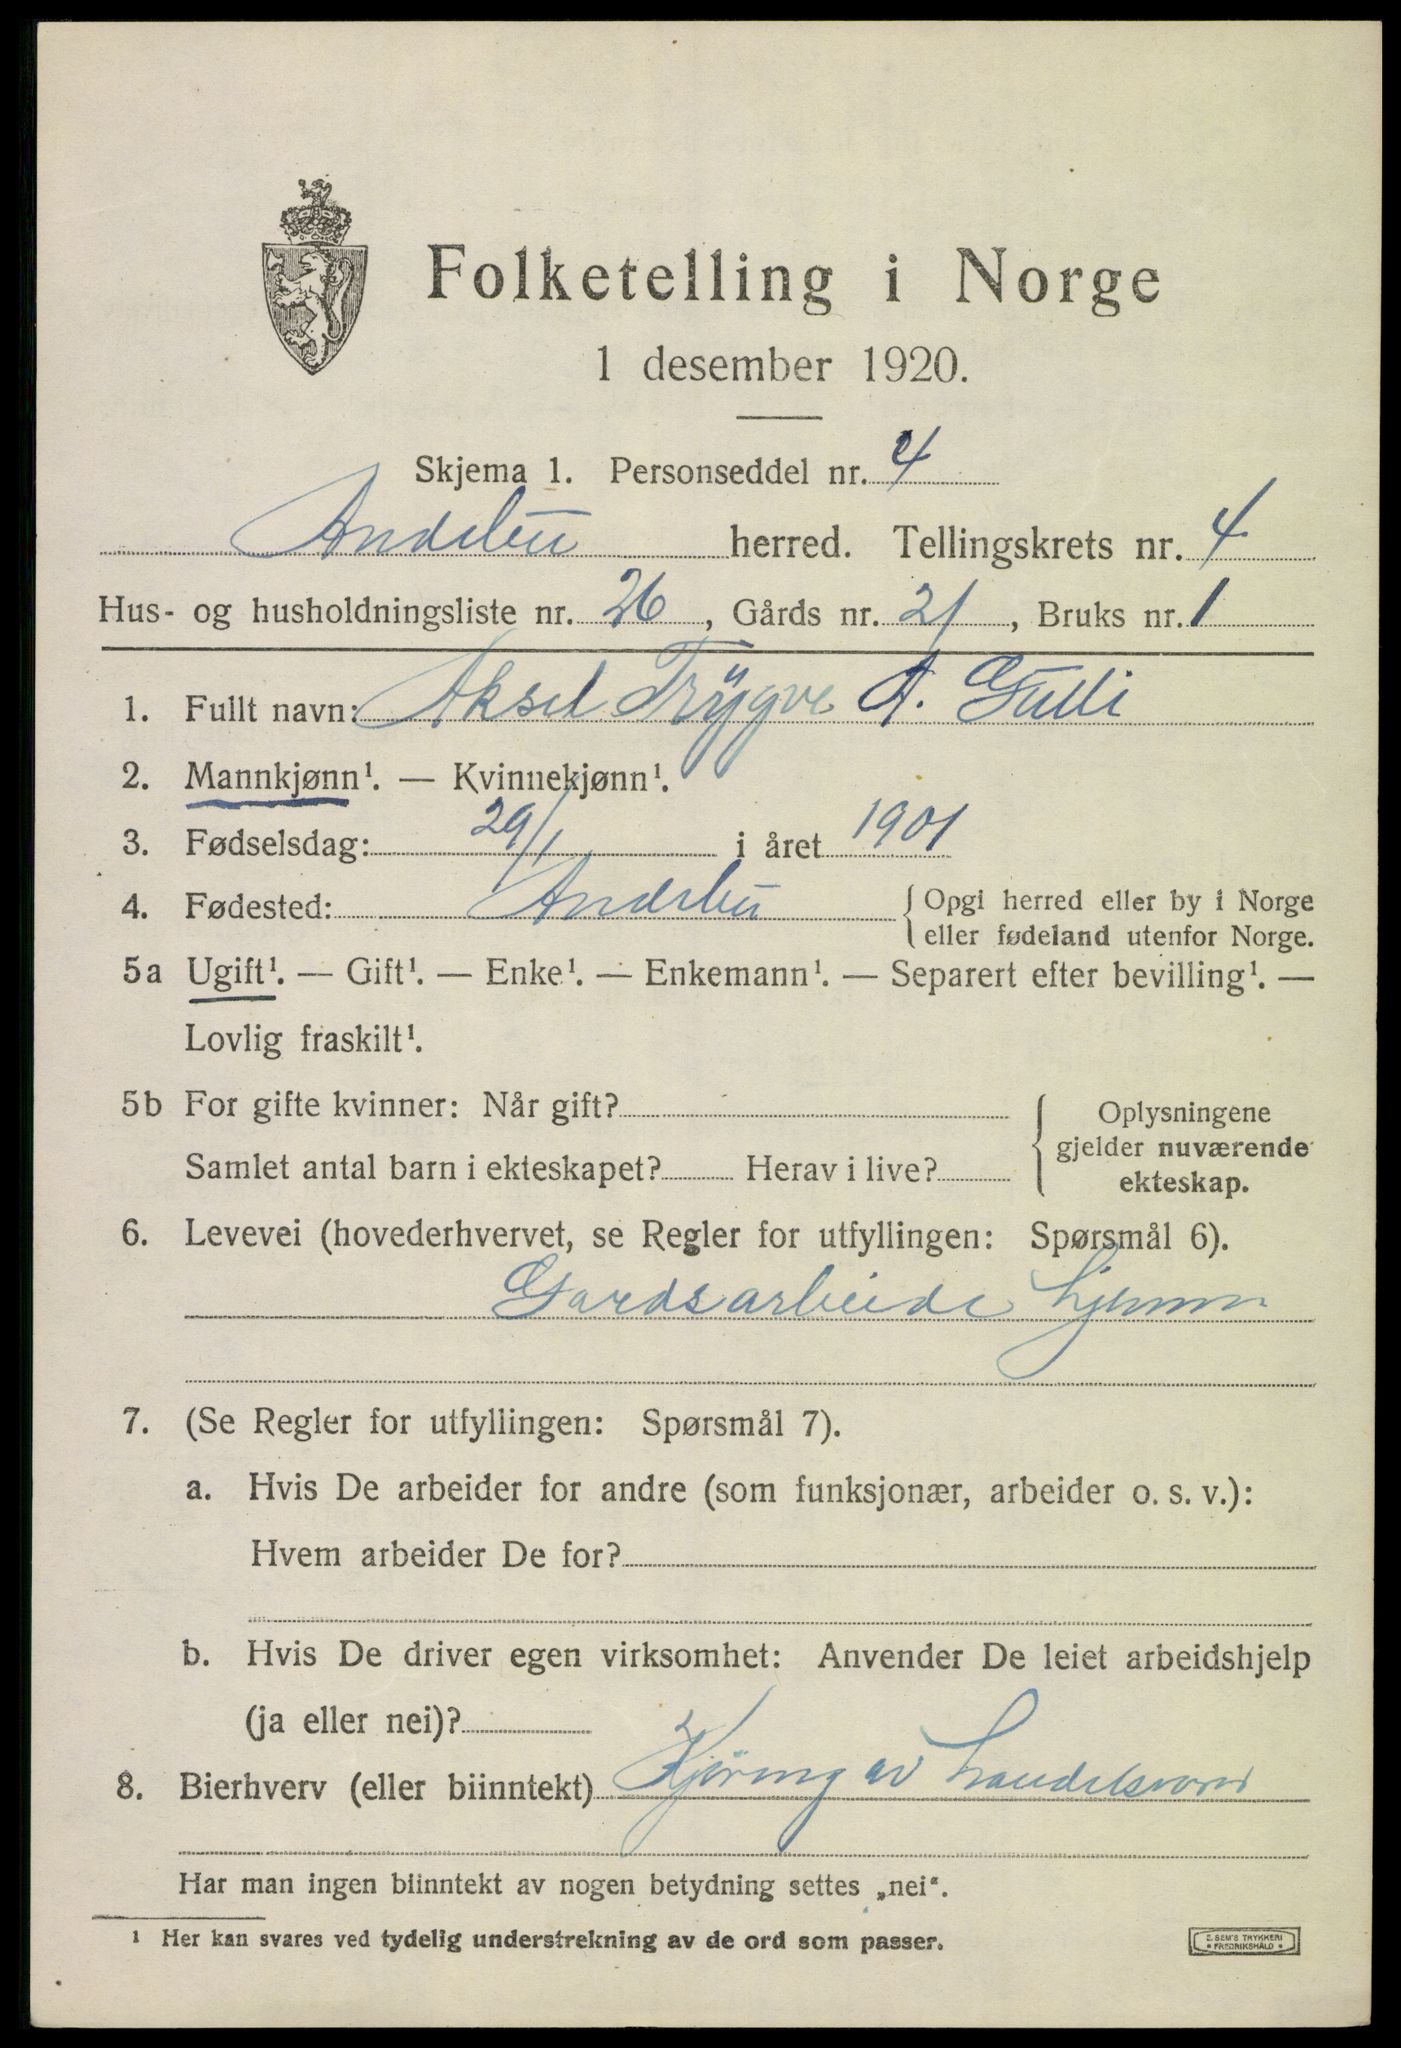 Folketelling i Norge
1 desember 1920.
Skjema 1. Personseddel nr. 4
Andebu herred. Tellingskrets nr. 4
Hus- og husholdningsliste nr. 26, Gårds nr. 21, Bruks nr. 1
1. Fullt navn: Aksel Trygve A. Gulli
2. Mannkjønn¹. — Kvinnekjønn¹.
3. Fødselsdag: 29/1 i året 1901
4. Fødested: Andebu { Opgi herred eller by i Norge
eller fødeland utenfor Norge.
5a Ugift¹. — Gift¹. — Enke¹. — Enkemann¹. — Separert efter bevilling¹. —
Lovlig fraskilt¹.
5b For gifte kvinner: Når gift? { Oplysningene
gjelder nuværende
Samlet antal barn i ekteskapet? Herav i live? ekteskap.
6. Levevei (hovederhvervet, se Regler for utfyllingen: Spørsmål 6).
Gardsarbeide hjemme
7. (Se Regler for utfyllingen: Spørsmål 7).
a. Hvis De arbeider for andre (som funksjonær, arbeider o. s. v.):
Hvem arbeider De for?
b. Hvis De driver egen virksomhet: Anvender De leiet arbeidshjelp
(ja eller nei)?
8. Bierhverv (eller biinntekt) Kjöring av
Har man ingen biinntekt av nogen betydning settes „nei“.
¹ Her kan svares ved tydelig understrekning av de ord som passer.
E. SEM'S TRYKKERI
• FREDRIKSHALD •